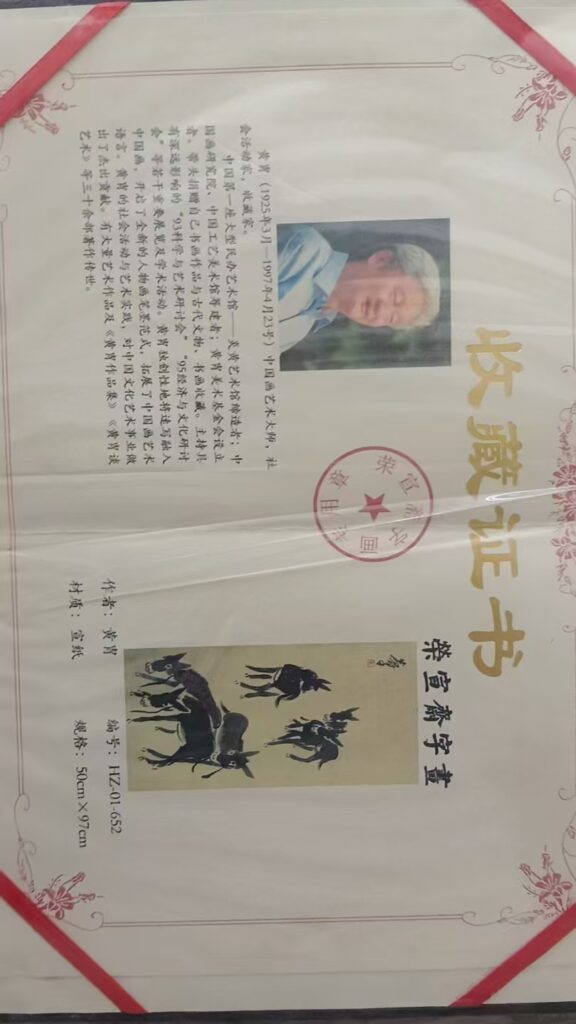 收藏证书
黄胄（1925年3月—1997年4月23号）中国画艺术大师，社
会活动家，收藏家。
中国第一座大型民办艺术馆——炎黄艺术馆缔造者；中
国画研究院、中国工艺美术馆筹建者；黄胄美术基金会设立
者。带头捐赠自己书画作品与古代文物、书画收藏。主持具
有深远影响的“93科学与艺术研讨会”“95经济与文化研讨
会”等若干重要展览及学术活动。黄胄独创性地将速写融入
中国画，开启了全新的人物画笔墨范式，拓展了中国画艺术
语言。黄胄的社会活动与艺术实践，对中国文化艺术事业做
出了杰出贡献。有大量艺术作品及《黄胄作品集》《黄胄谈
艺术》等三十余部著作传世。
荣宣斋字画
专用章
榮宣齋字畫
作者：黄胄
编号：HZ-01-652
材质：宣纸
规格：50cm×97cm